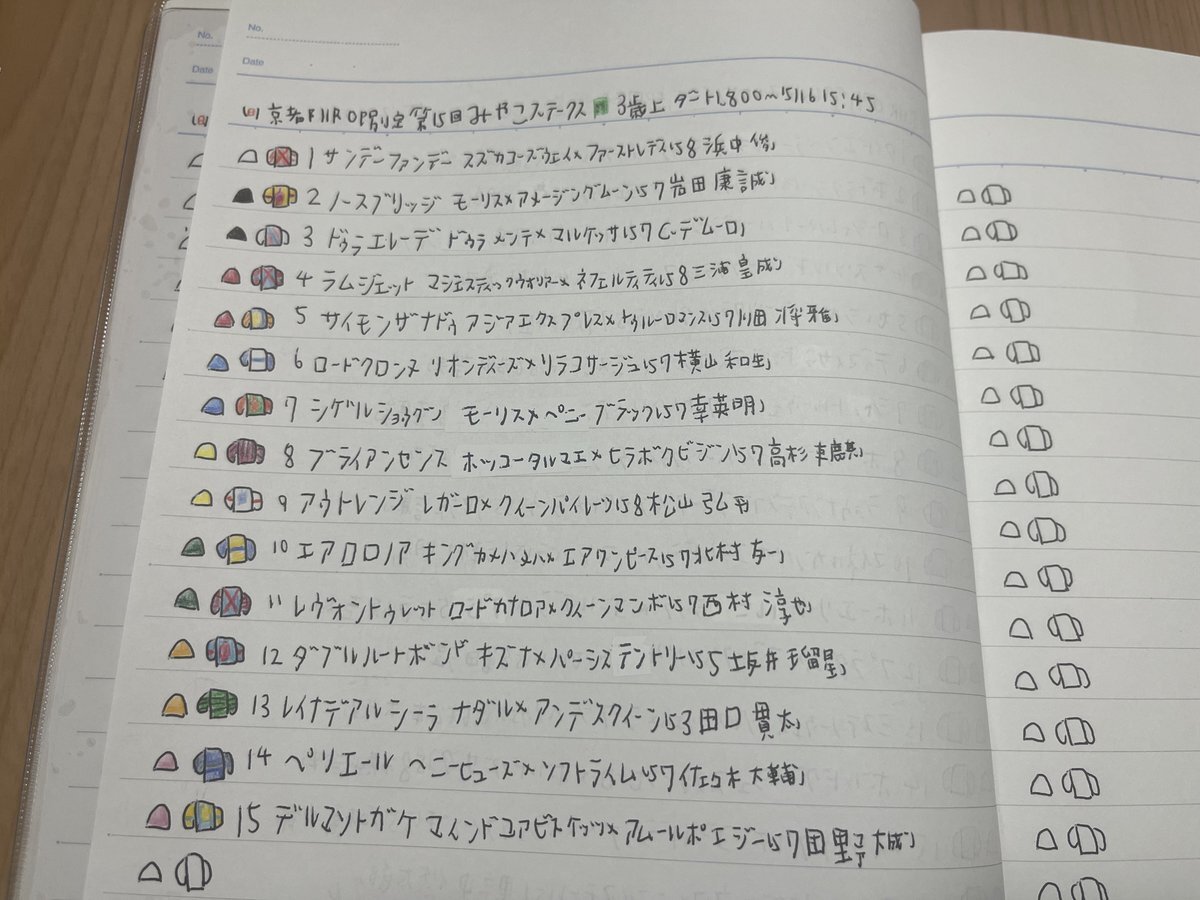 No.
Date
No.
Date
(日) 京都11R OP別定 第15回みやこステークス 3歳上 ダート1,800m 15|16 15:45
1 サンデーファンデー スズカコーズウェイ×ファーストレディ58 浜中 俊
2 ノースブリッジ モーリス×アメージングムーン57 岩田 康誠
3 ドゥラエレーデ ドゥラメンテ×マルケッサ57 C・デムーロ
4 ラムジェット マジェスティックウォリアー×ネフェルティティ58 三浦 皇成
5 サイモンザナドゥ アジアエクスプレス×トゥルーロマンス57 川田 将雅
6 ロードクロンヌ リオンディーズ×リラコサージュ57 横山 和生
7 シゲルショウグン モーリス×ペニーブラック57 幸英明
8 ブライアンセンス ホッコータルマエ×ヒラボクビジン57 高杉 吏麒
9 アウトレンジ レガーロ×クイーンパイレーツ58 松山 弘平
10 エアロロノア キングカメハメハ×エアワンピース57 北村 友一
11 レヴォントゥレット ロードカナロア×クィーンマンボ57 西村 淳也
12 ダブルハートボンド キズナ×パーシステントリー55 坂井 瑠星
13 レイナデアルシーラ ナダル×アンデスクイーン53 田口 貫太
14 ペリエール ヘニーヒューズ×ソフトライム57 佐々木 大輔
15 デルマソトガケ マインドユアビスケッツ×アムールポエジー57 団野 大成